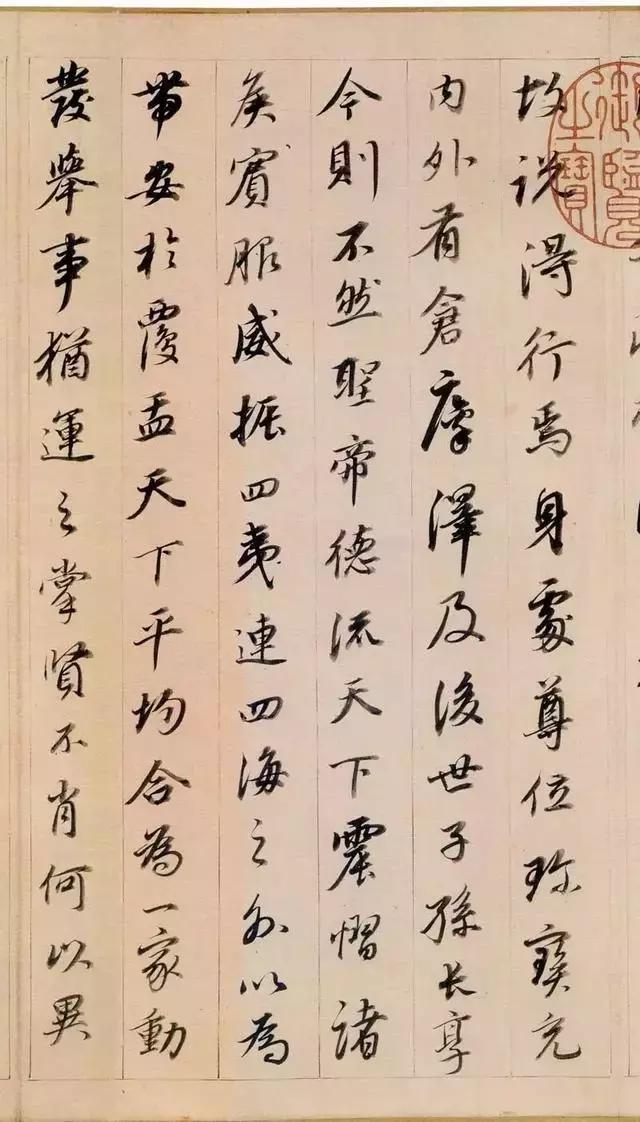 故說得行焉身處尊位珍寶充
內外有倉廩澤及後世子孫長享
今則不然聖帝德流天下震慴諸
侯賓服威振四夷連四海之外以為
帶安於覆盂天下平均合為一家動
發舉事猶運之掌賢不肖何以異
御覽之寶